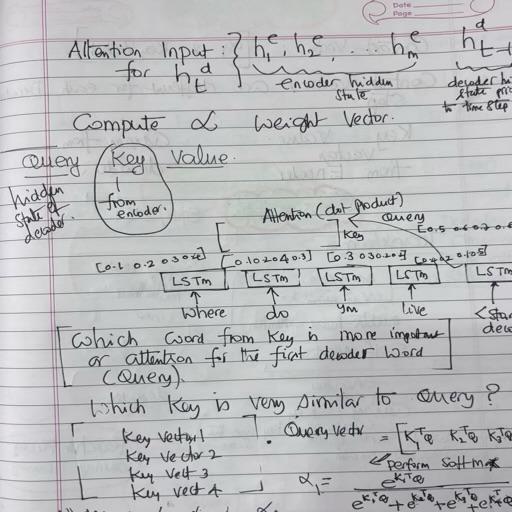 Date
Page
Attention Input : } h₁ᵉ, h₂ᵉ, ... hₘᵉ
for hₜᵈ
encoder hidden state
decoder
Compute α weight Vector.
Query Key Value.
hidden state of decoder.
from encoder.
Attention (dot product)
Query
Key
[0.1 0.2 0.3 0.4]
LSTM LSTM LSTM LSTM LSTM
where do you live
Which word from Key is more important
or attention for the first decoder word
(Query).
Which Key is very similar to Query ?
Key Vector 1
Key Vector 2
Key Vect 3
Key Vect 4
. Query Vector = [K₁ᵀQ K₂ᵀQ K₃ᵀQ
perform softmax
α₁ =
e^K₁ᵀQ + e^K₂ᵀQ + e^K₃ᵀQ + e^K₄ᵀQ